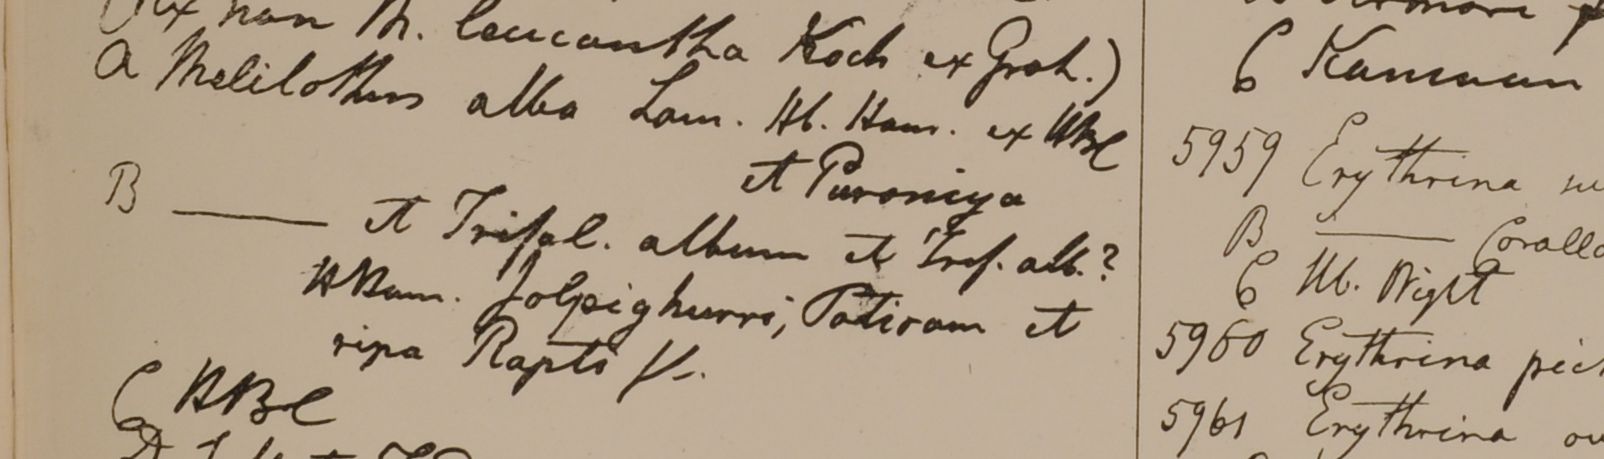 non M. leucantha Koch ex Grah.)
a Melilothus alba Lam. Hb. Ham. ex HBC
et Puroniya
B ——— et Trifol. album et Trif. alb.?
HBam. Jolpighurri, Patiram et
ripa Rapti fl.
C HBC
C Kamaun
5959 Erythrina
B ——— Corallo
C Hb. Wight
5960 Erythrina pict
5961 Erythrina ov